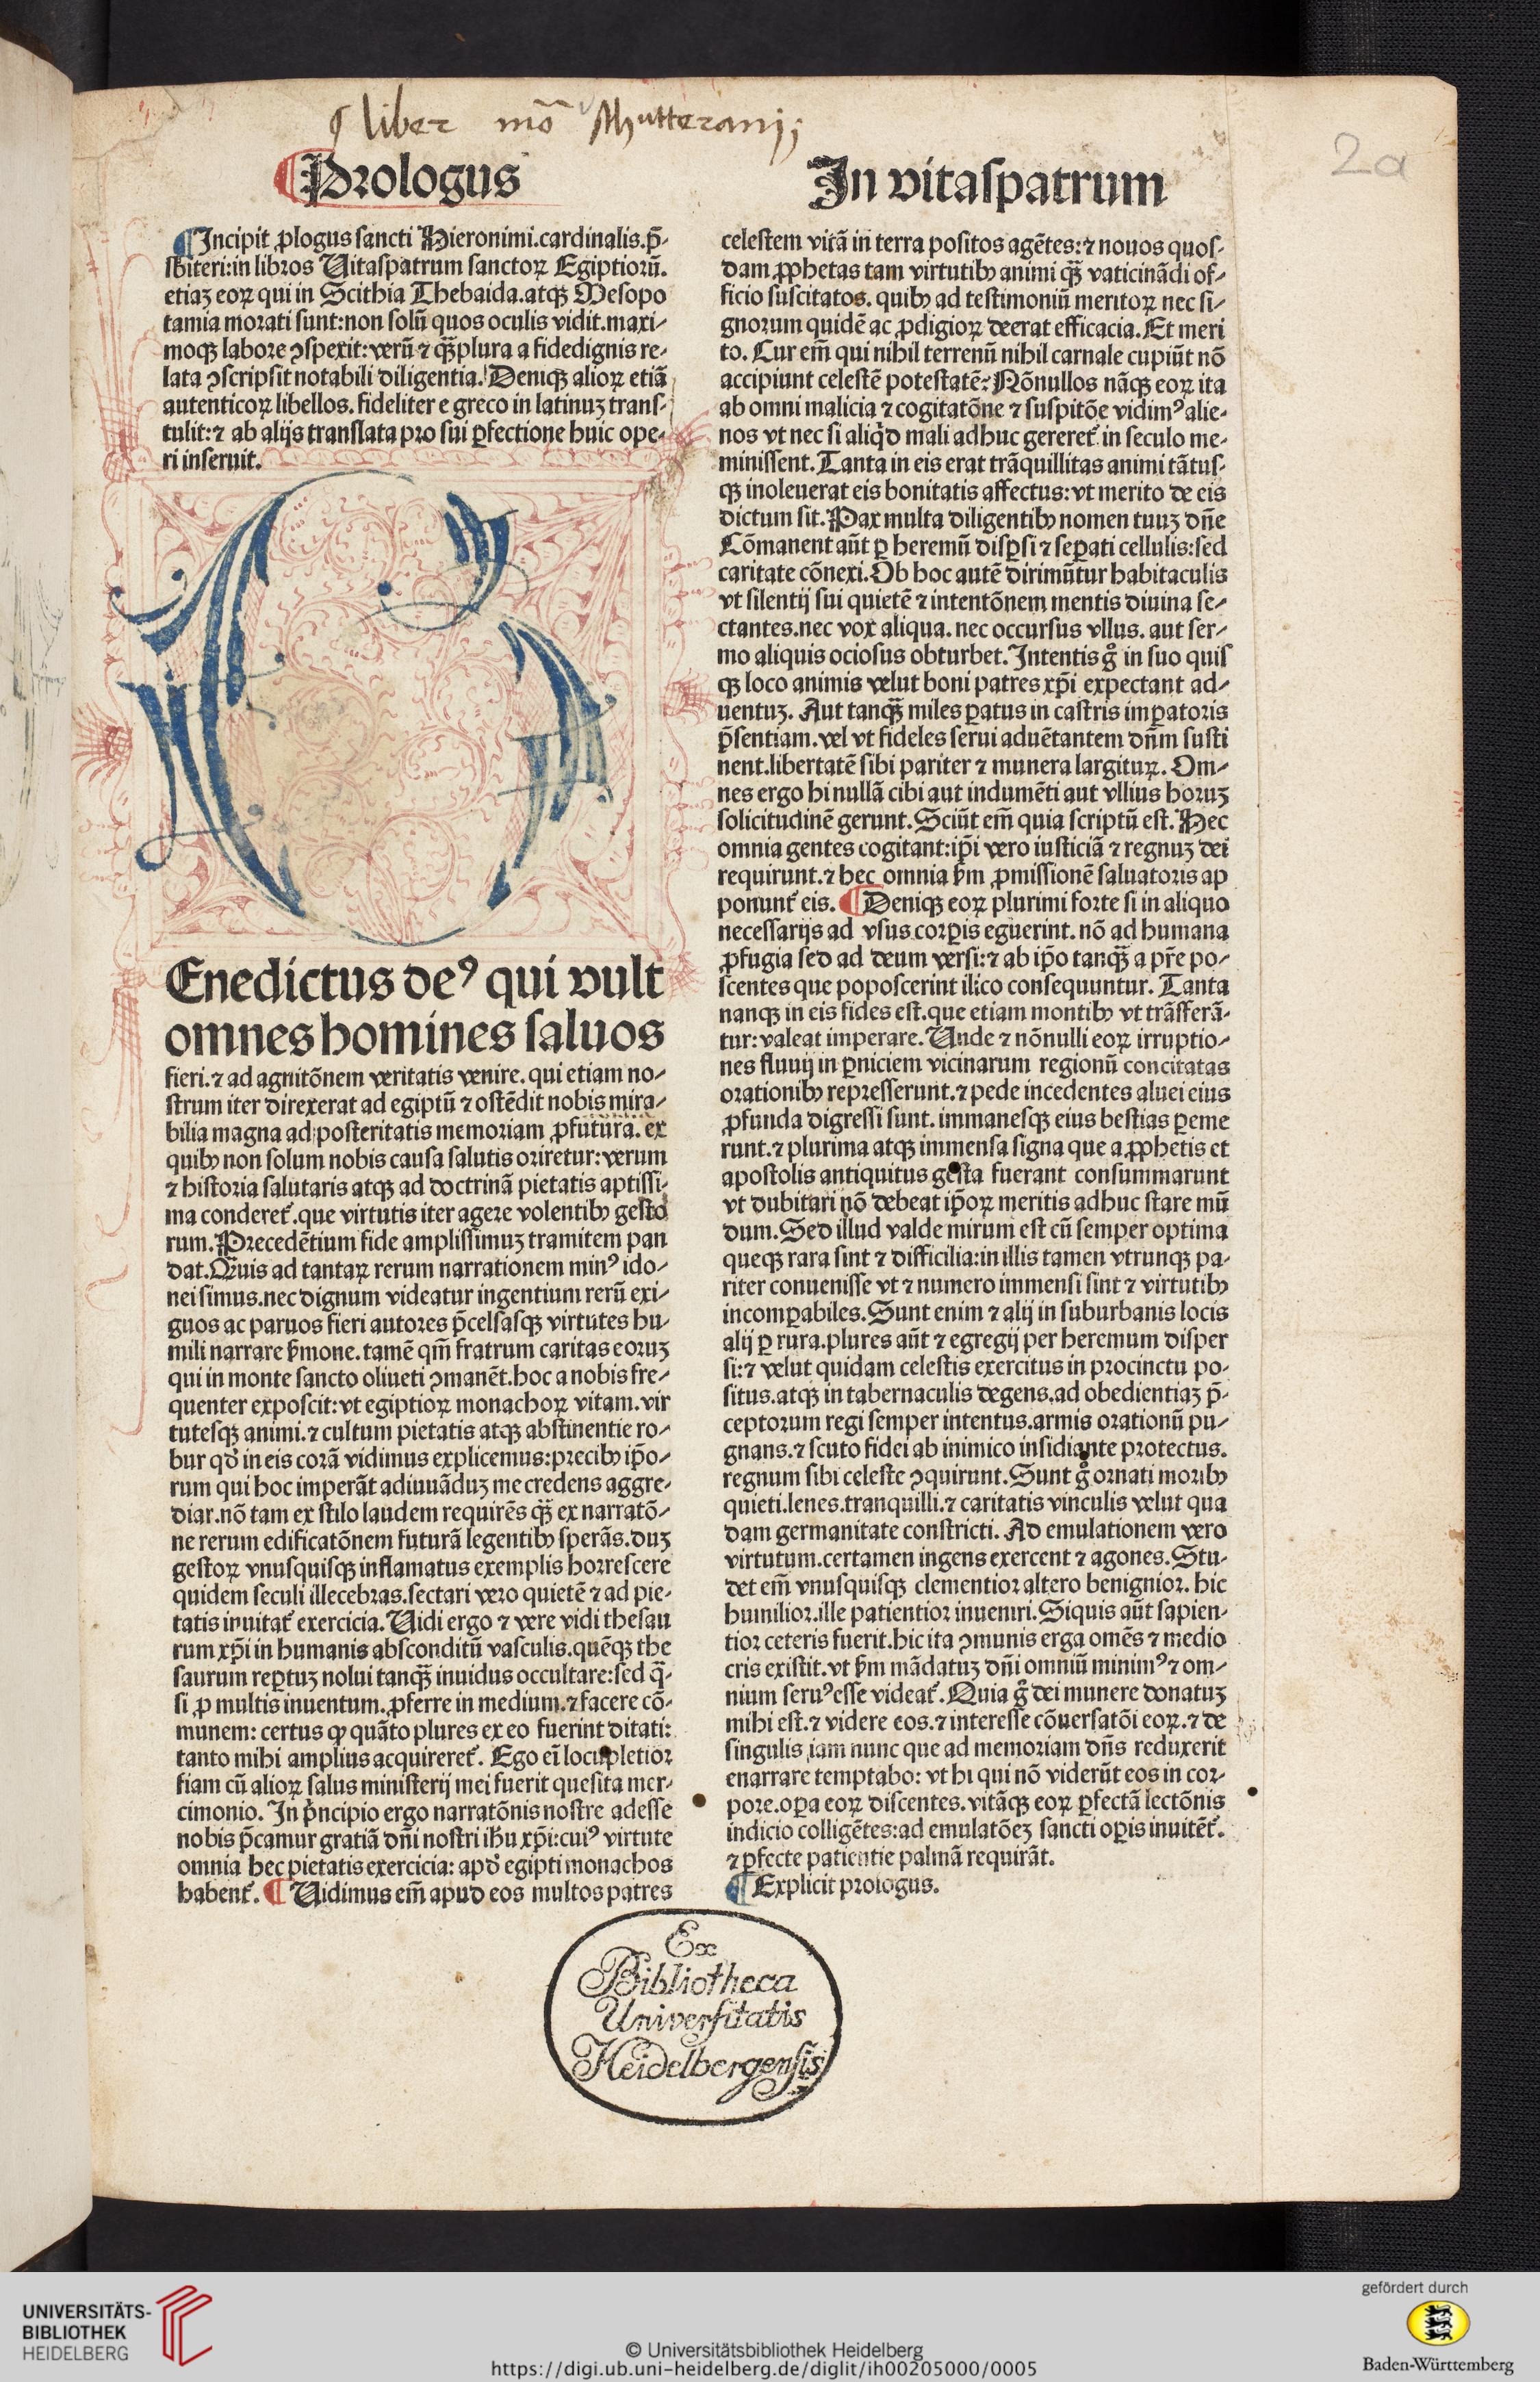 liber mo͞ Schutteranj;
2a
¶Prologus
In vitaspatrum
¶Incipit ꝓlogus sancti Hieronimi.cardinalis.p̄-
sbiteri:in libros Uitaspatrum sanctoꝝ Egiptiorū.
etiaꝫ eoꝝ qui in Scithia Thebaida.atqꝫ Mesopo
tamia morati sunt:non solū quos oculis vidit.maxi-
moqꝫ labore ꝯspexit:verū ⁊ qꝫ̄plura a fidedignis re-
lata ꝯscripsit notabili diligentia. Deniqꝫ alioꝝ etiā
autenticoꝝ libellos.fideliter e greco in latinuꝫ trans-
tulit:⁊ ab alijs translata pro sui ꝑfectione huic ope-
ri inseruit.
Enedictus deꝰ qui vult
omnes homines saluos
fieri.⁊ ad agnitōnem veritatis venire.qui etiam no-
strum iter direxerat ad egiptū ⁊ ostēdit nobis mira-
bilia magna ad posteritatis memoriam ꝓfutura.ex
quibꝰ non solum nobis causa salutis oriretur:verum
⁊ historia salutaris atqꝫ ad doctrinā pietatis aptissi-
ma conderet᷑.que virtutis iter agere volentibꝰ gesto
rum.Precedētium fide amplissimuꝫ tramitem pan
dat.Qꝫ̄uis ad tantaꝝ rerum narrationem minꝰ ido-
nei simus.nec dignum videatur ingentium rerū exi-
guos ac paruos fieri autores p̄celsasqꝫ virtutes hu-
mili narrare ẜmone.tamē qm̄ fratrum caritas eoruꝫ
qui in monte sancto oliueti ꝯmanēt.hoc a nobis fre-
quenter exposcit:vt egiptioꝝ monachoꝝ vitam.vir
tutesqꝫ animi.⁊ cultum pietatis atqꝫ abstinentie ro-
bur qd̓ in eis corā vidimus explicemus:precibꝰ ip̄o-
rum qui hoc imperāt adiuuāduꝫ me credens aggre-
diar.nō tam ex stilo laudem requirēs qꝫ̄ ex narratō-
ne rerum edificatōnem futurā legentibꝰ sperās.duꝫ
gestoꝝ vnusquisqꝫ inflamatus exemplis horrescere
quidem seculi illecebras.sectari vero quietē ⁊ ad pie-
tatis inuitat᷑ exercicia.Uidi ergo ⁊ vere vidi thesau
rum xp̄i in humanis absconditū vasculis.quēqꝫ the
saurum reꝑtuꝫ nolui tanqꝫ̄ inuidus occultare:sed q̄-
si ꝓ multis inuentum.ꝓferre in medium.⁊ facere cō-
munem: certus ꝙ quāto plures ex eo fuerint ditati:
tanto mihi amplius acquireret᷑. Ego ei̅ locupletior
fiam cū alioꝝ salus ministerij mei fuerit quesita mer-
cimonio. In p̓ncipio ergo narratōnis nostre adesse
nobis p̄camur gratiā dn̄i nostri ih̄u xp̄i:cuiꝰ virtute
omnia hec pietatis exercicia: apd̓ egipti monachos
habent᷑.¶ Uidimus em̄ apud eos multos patres
celestem vitā in terra positos agētes:⁊ nouos quos-
dam ꝓphetas tam virtutibꝰ animi qꝫ̄ vaticinādi of-
ficio suscitatos.quibꝰ ad testimoniū meritoꝝ nec si-
gnorum quidē ac ꝓdigioꝝ deerat efficacia.Et meri
to. Cur em̄ qui nihil terrenū nihil carnale cupiūt nō
accipiunt celestē potestatē? Nōnullos nāqꝫ eoꝝ ita
ab omni malicia ⁊ cogitatōne ⁊ suspitōe vidimꝰ alie-
nos vt nec si aliqd̓ mali adhuc gereret᷑ in seculo me-
minissent.Tanta in eis erat trāquillitas animi tātus-
qꝫ inoleuerat eis bonitatis affectus:vt merito de eis
dictum sit.Pax multa diligentibꝰ nomen tuuꝫ dn̄e
Cōmanent aūt ꝑ heremū disꝑsi ⁊ seꝑati cellulis:sed
caritate cōnexi.Ob hoc autē dirimūtur habitaculis
vt silentij sui quietē ⁊ intentōnem mentis diuina se-
ctantes.nec vox aliqua.nec occursus vllus. aut ser-
mo aliquis ociosus obturbet.Intentis gͦ in suo quis
qꝫ loco animis velut boni patres xp̄i expectant ad-
uentuꝫ. Aut tanqꝫ̄ miles ꝑatus in castris imꝑatoris
p̄sentiam.vel vt fideles serui aduētantem dn̄m susti
nent.libertatē sibi pariter ⁊ munera largituꝝ. Om-
nes ergo hi nullā cibi aut indumēti aut vllius horuꝫ
solicitudinē gerunt.Sciūt em̄ quia scriptū est.Hec
omnia gentes cogitant:ip̄i vero iusticiā ⁊ regnuꝫ dei
requirunt.⁊ hec omnia ẜm ꝓmissionē saluatoris ap
ponunt᷑ eis.¶ Deniqꝫ eoꝝ plurimi forte si in aliquo
necessarijs ad vsus corꝑis eguerint.nō ad humana
ꝓfugia sed ad deum versi:⁊ ab ip̄o tanqꝫ̄ a pr̄e po-
scentes que poposcerint ilico consequuntur. Tanta
nanqꝫ in eis fides est.que etiam montibꝰ vt trāsferā-
tur:valeat imperare.Unde ⁊ nōnulli eoꝝ irruptio-
nes fluuij in ꝑniciem vicinarum regionū concitatas
orationibꝰ represserunt.⁊ pede incedentes aluei eius
ꝓfunda digressi sunt. immanesqꝫ eius bestias ꝑeme
runt.⁊ plurima atqꝫ immensa signa que a ꝓphetis et
apostolis antiquitus gesta fuerant consummarunt
vt dubitari nō debeat ip̄oꝝ meritis adhuc stare mū
dum.Sed illud valde mirum est cū semper optima
queqꝫ rara sint ⁊ difficilia:in illis tamen vtrunqꝫ pa-
riter conuenisse vt ⁊ numero immensi sint ⁊ virtutibꝰ
incomꝑabiles.Sunt enim ⁊ alij in suburbanis locis
alij ꝑ rura.plures aūt ⁊ egregij per heremum disper
si:⁊ velut quidam celestis exercitus in procinctu po-
situs.atqꝫ in tabernaculis degens.ad obedientiaꝫ p̄-
ceptorum regi semper intentus.armis orationū pu-
gnans.⁊ scuto fidei ab inimico insidiante protectus.
regnum sibi celeste ꝯquirunt.Sunt gͦ ornati moribꝰ
quieti.lenes.tranquilli.⁊ caritatis vinculis velut qua
dam germanitate constricti. Ad emulationem vero
virtutum.certamen ingens exercent ⁊ agones.Stu-
det em̄ vnusquisqꝫ clementior altero benignior. hic
humilior.ille patientior inueniri.Siquis aūt sapien-
tior ceteris fuerit.hic ita ꝯmunis erga omēs ⁊ medio
cris existit.vt ẜm mādatuꝫ dn̄i omniū minimꝰ ⁊ om-
nium seruꝰ esse videat᷑.Quia gͦ dei munere donatuꝫ
mihi est.⁊ videre eos.⁊ interesse cōuersatōi eoꝝ.⁊ de
singulis iam nunc que ad memoriam dn̄s reduxerit
enarrare temptabo: vt hi qui nō viderūt eos in cor-
pore.oꝑa eoꝝ discentes.vitāqꝫ eoꝝ ꝑfectā lectōnis
indicio colligētes:ad emulatōeꝫ sancti oꝑis inuitēt᷑.
⁊ ꝑfecte patientie palmā requirāt.
¶ Explicit prologus.
Ex
Bibliotheca
Universitatis
Heidelbergensis
UNIVERSITÄTS-
BIBLIOTHEK
HEIDELBERG
© Universitätsbibliothek Heidelberg
https://digi.ub.uni-heidelberg.de/diglit/ih00205000/0005
gefördert durch
Baden-Württemberg